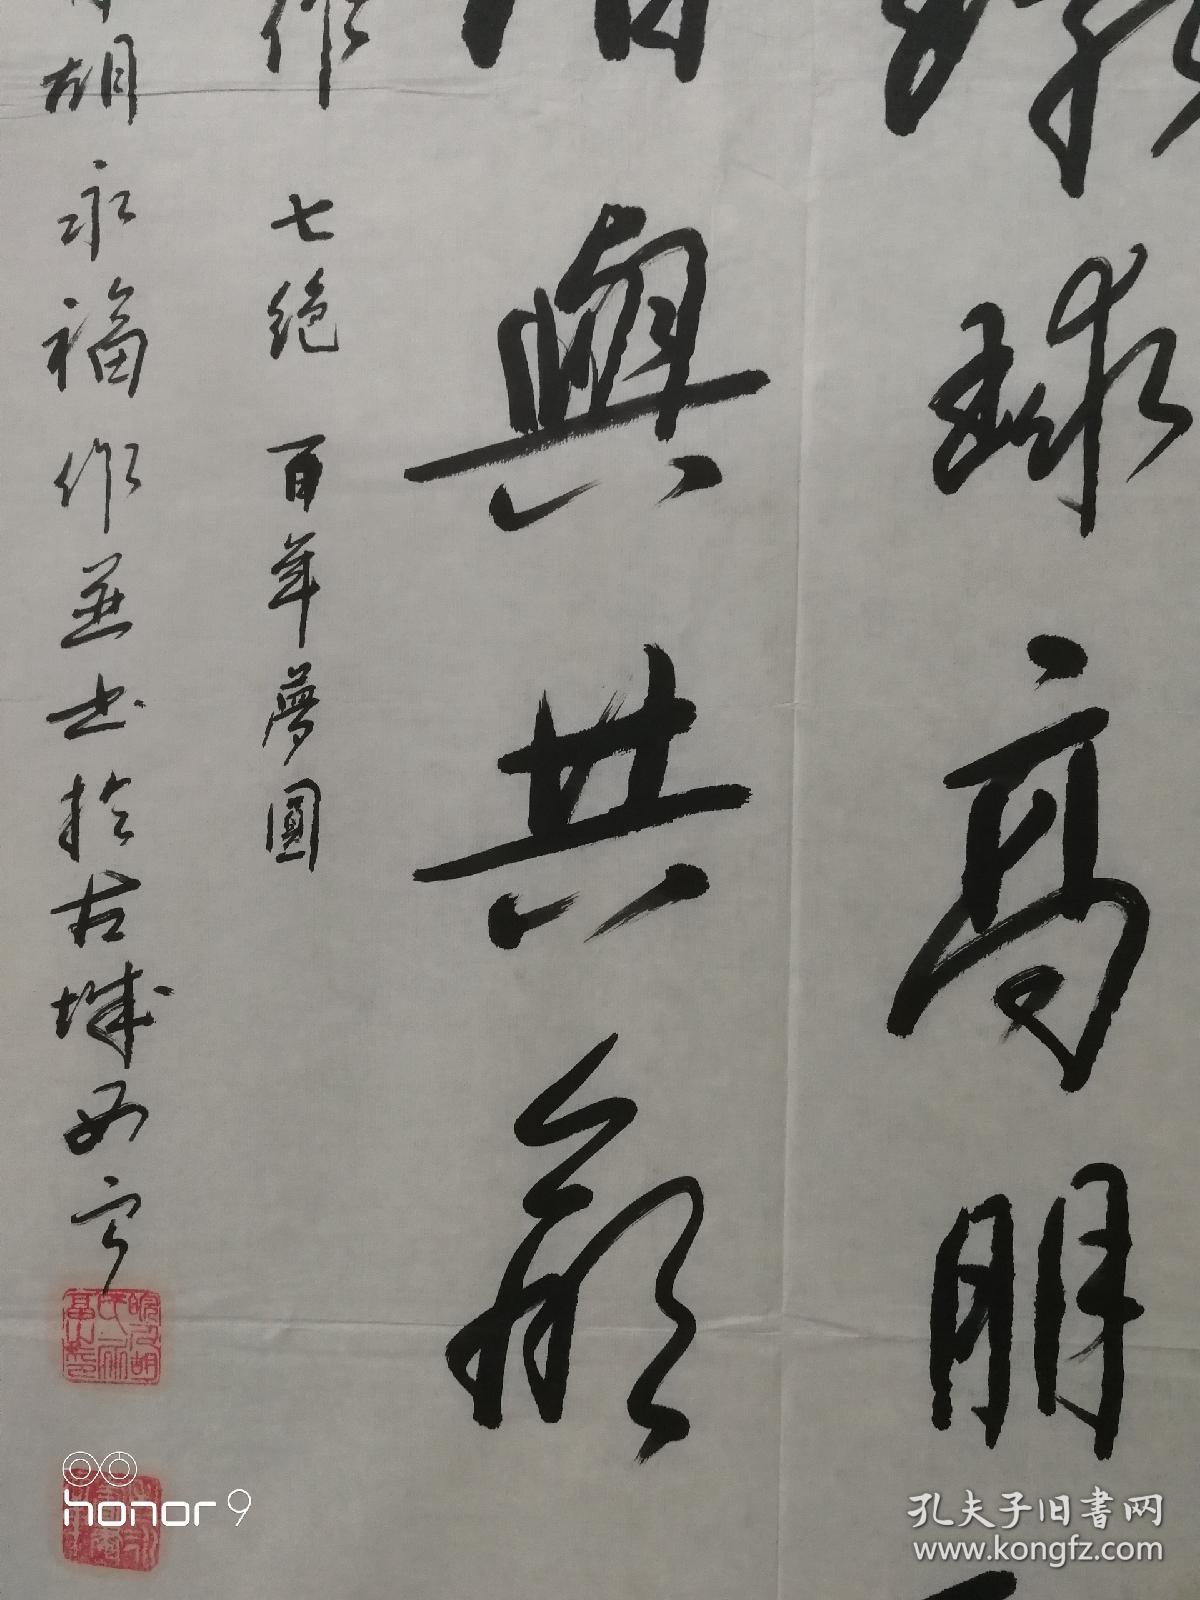 球高朋
與共顏
作 七絕 百年夢圓
胡永福作並书於古城西宁
honor 9
孔夫子旧书网
www.kongfz.com